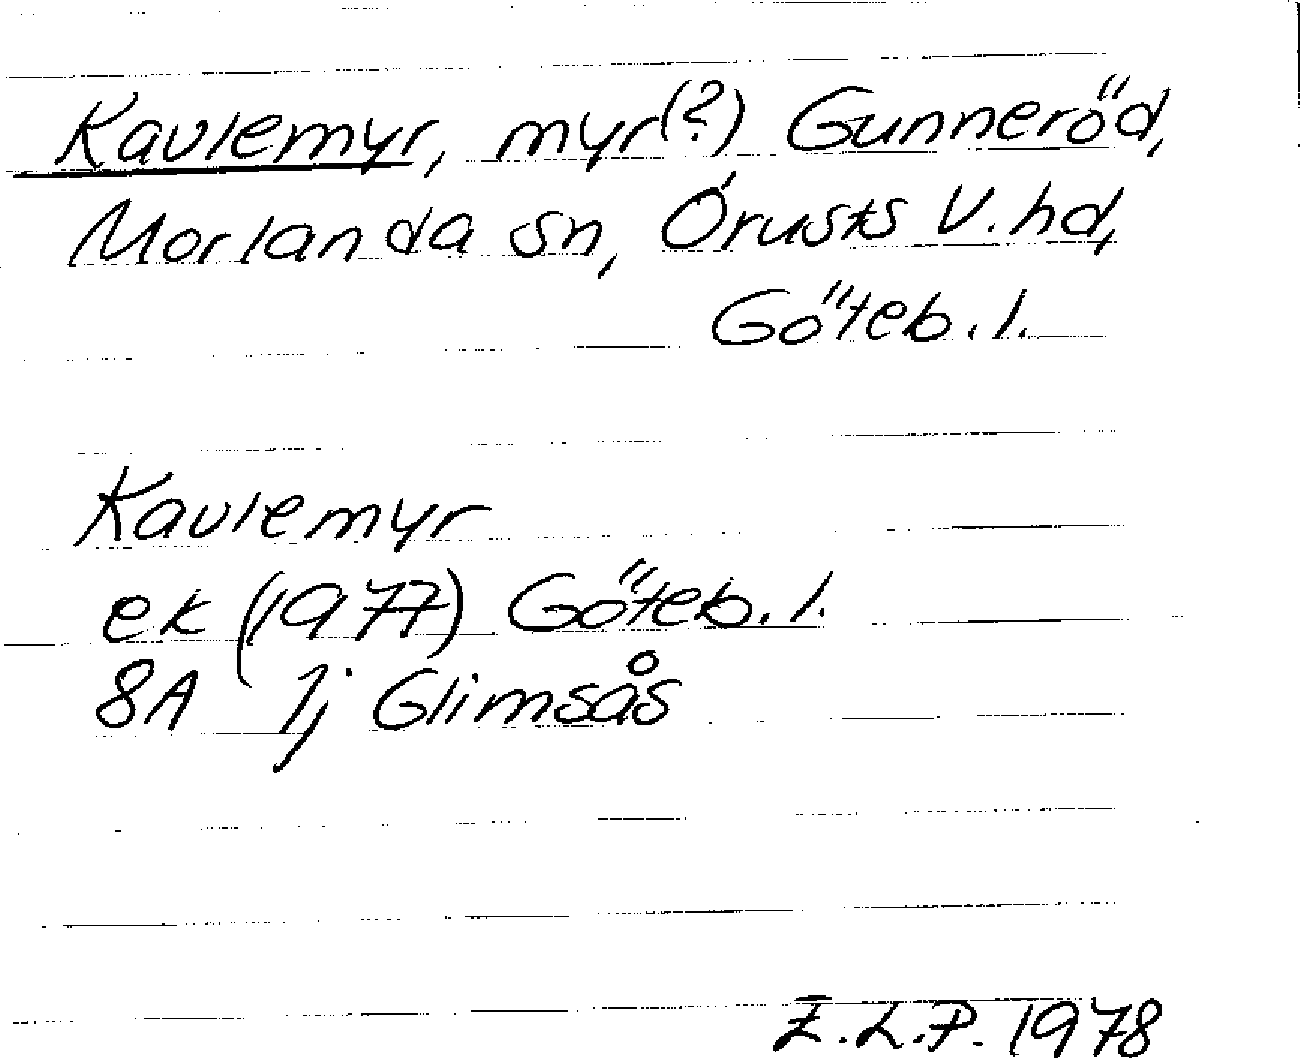 Kavlemyr, myr(?) Gunneröd,
Morlanda sn, Orusts V. hd,
Göteb. l.
Kavlemyr
ek (1977) Göteb. l.
8A 1j Glimsås
E.L.P. 1978